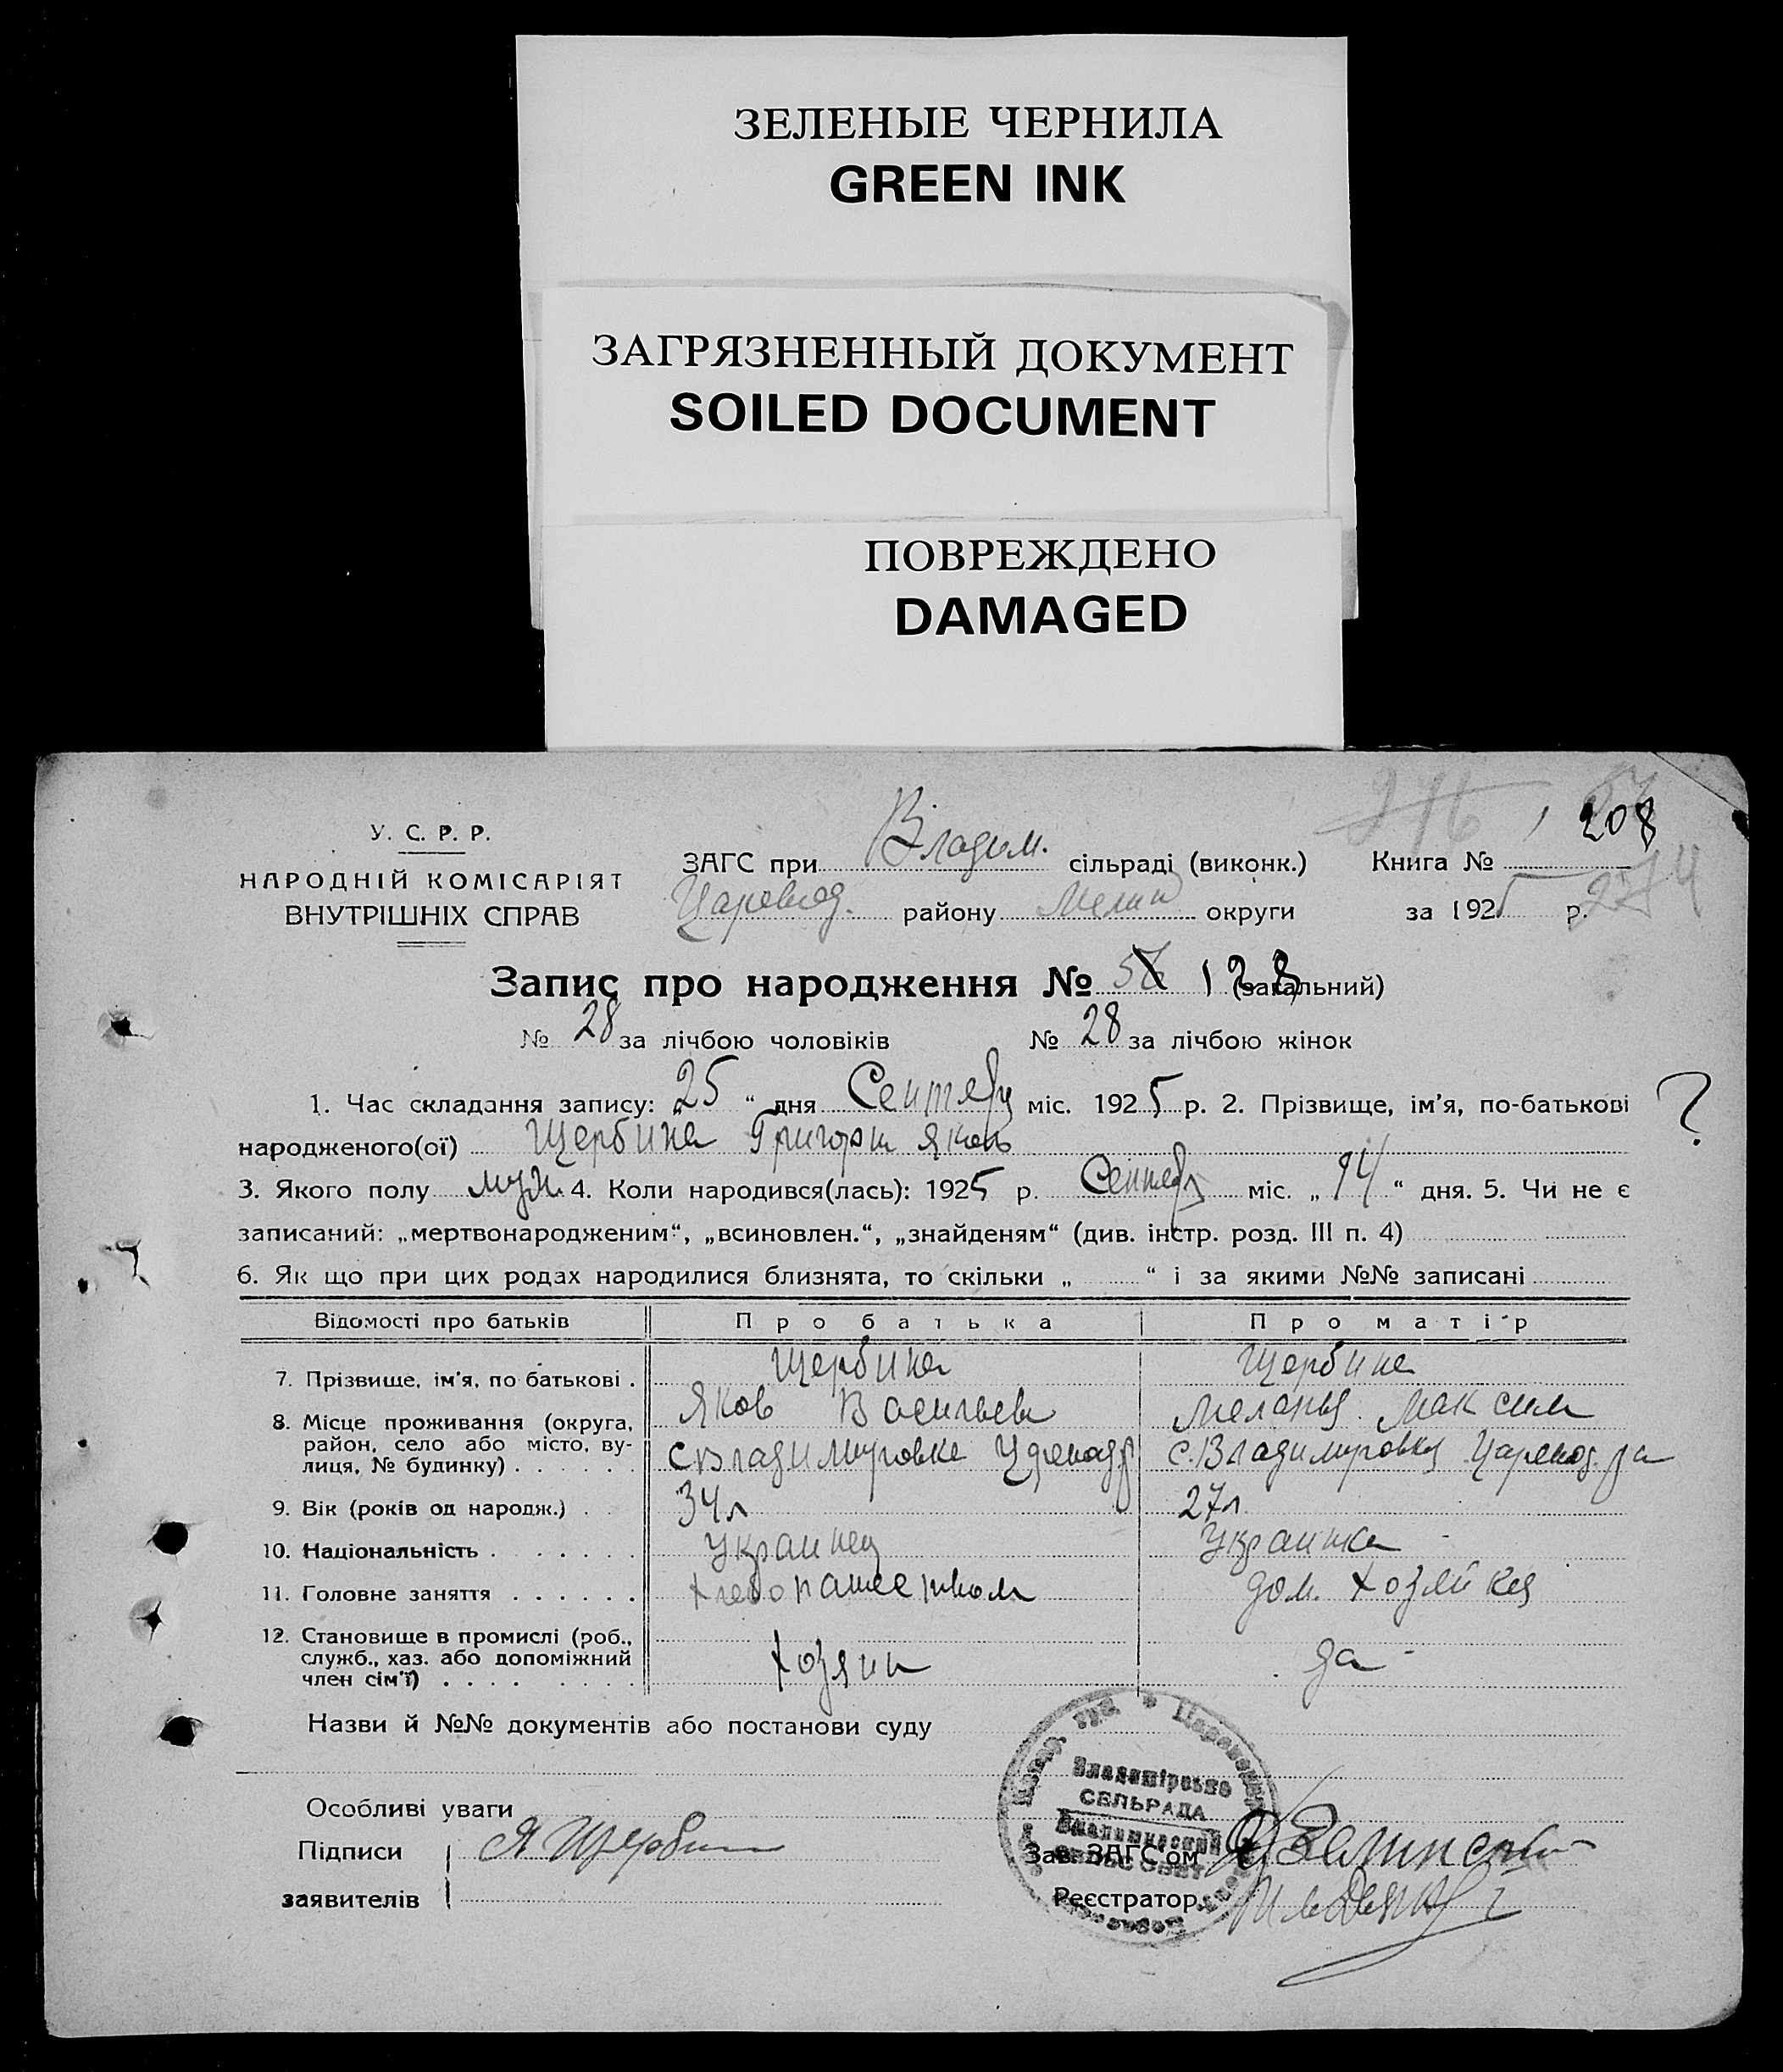 ЗЕЛЕНЫЕ ЧЕРНИЛА
GREEN INK
ЗАГРЯЗНЕННЫЙ ДОКУМЕНТ
SOILED DOCUMENT
ПОВРЕЖДЕНО
DAMAGED
276
208
У. С. Р. Р.
НАРОДНІЙ КОМІСАРІЯТ
ВНУТРІШНІХ СПРАВ
ЗАГС при Владим. сільраді (виконк.) Книга №
274
Царевод. району Мелит округи за 1925 р.
Запис про народження № 128 (загальний)
№ 28 за лічбою чоловіків № 28 за лічбою жінок
1. Час складання запису: „25“ дня Сентябр міс. 1925 р. 2. Прізвище, ім'я, по-батькові ?
народженого(ої) Щербина Григори Яков
3. Якого полу муж. 4. Коли народився(лась): 1925 р. Сентябр міс. „14“ дня. 5. Чи не є
записаний: „мертвонародженим“, „всиновлен.“, „знайденям“ (див. інстр. розд. III п. 4)
6. Як що при цих родах народилися близнята, то скільки „ “ і за якими №№ записані
Відомості про батьків Про батька Про матір
7. Прізвище, ім'я, по батькові . Щербина Щербина
Яков Васильев Меланья Максим
8. Місце проживання (округа, район, село або місто, вулиця, № будинку) . . . . . . с Владимировка с. Владимировка Царевод. р а
9. Вік (років од народж.) . . 34 л 27 л
10. Національність . . . . . . Украинец Украинка
11. Головне заняття . . . . . . Хлебопашеством дом. хозяйка
12. Становище в промислі (роб., служб., хаз. або допоміжний член сім'ї) . . . . . . . . Хозяин да -
Назви й №№ документів або постанови суду
Особливі уваги
Владимірська
СЕЛЬРАДА
Владимирский
СЕЛЬСОВЕТ
Підписи Я Щербин Зав. ЗАГС'ом
заявителів Реєстратор